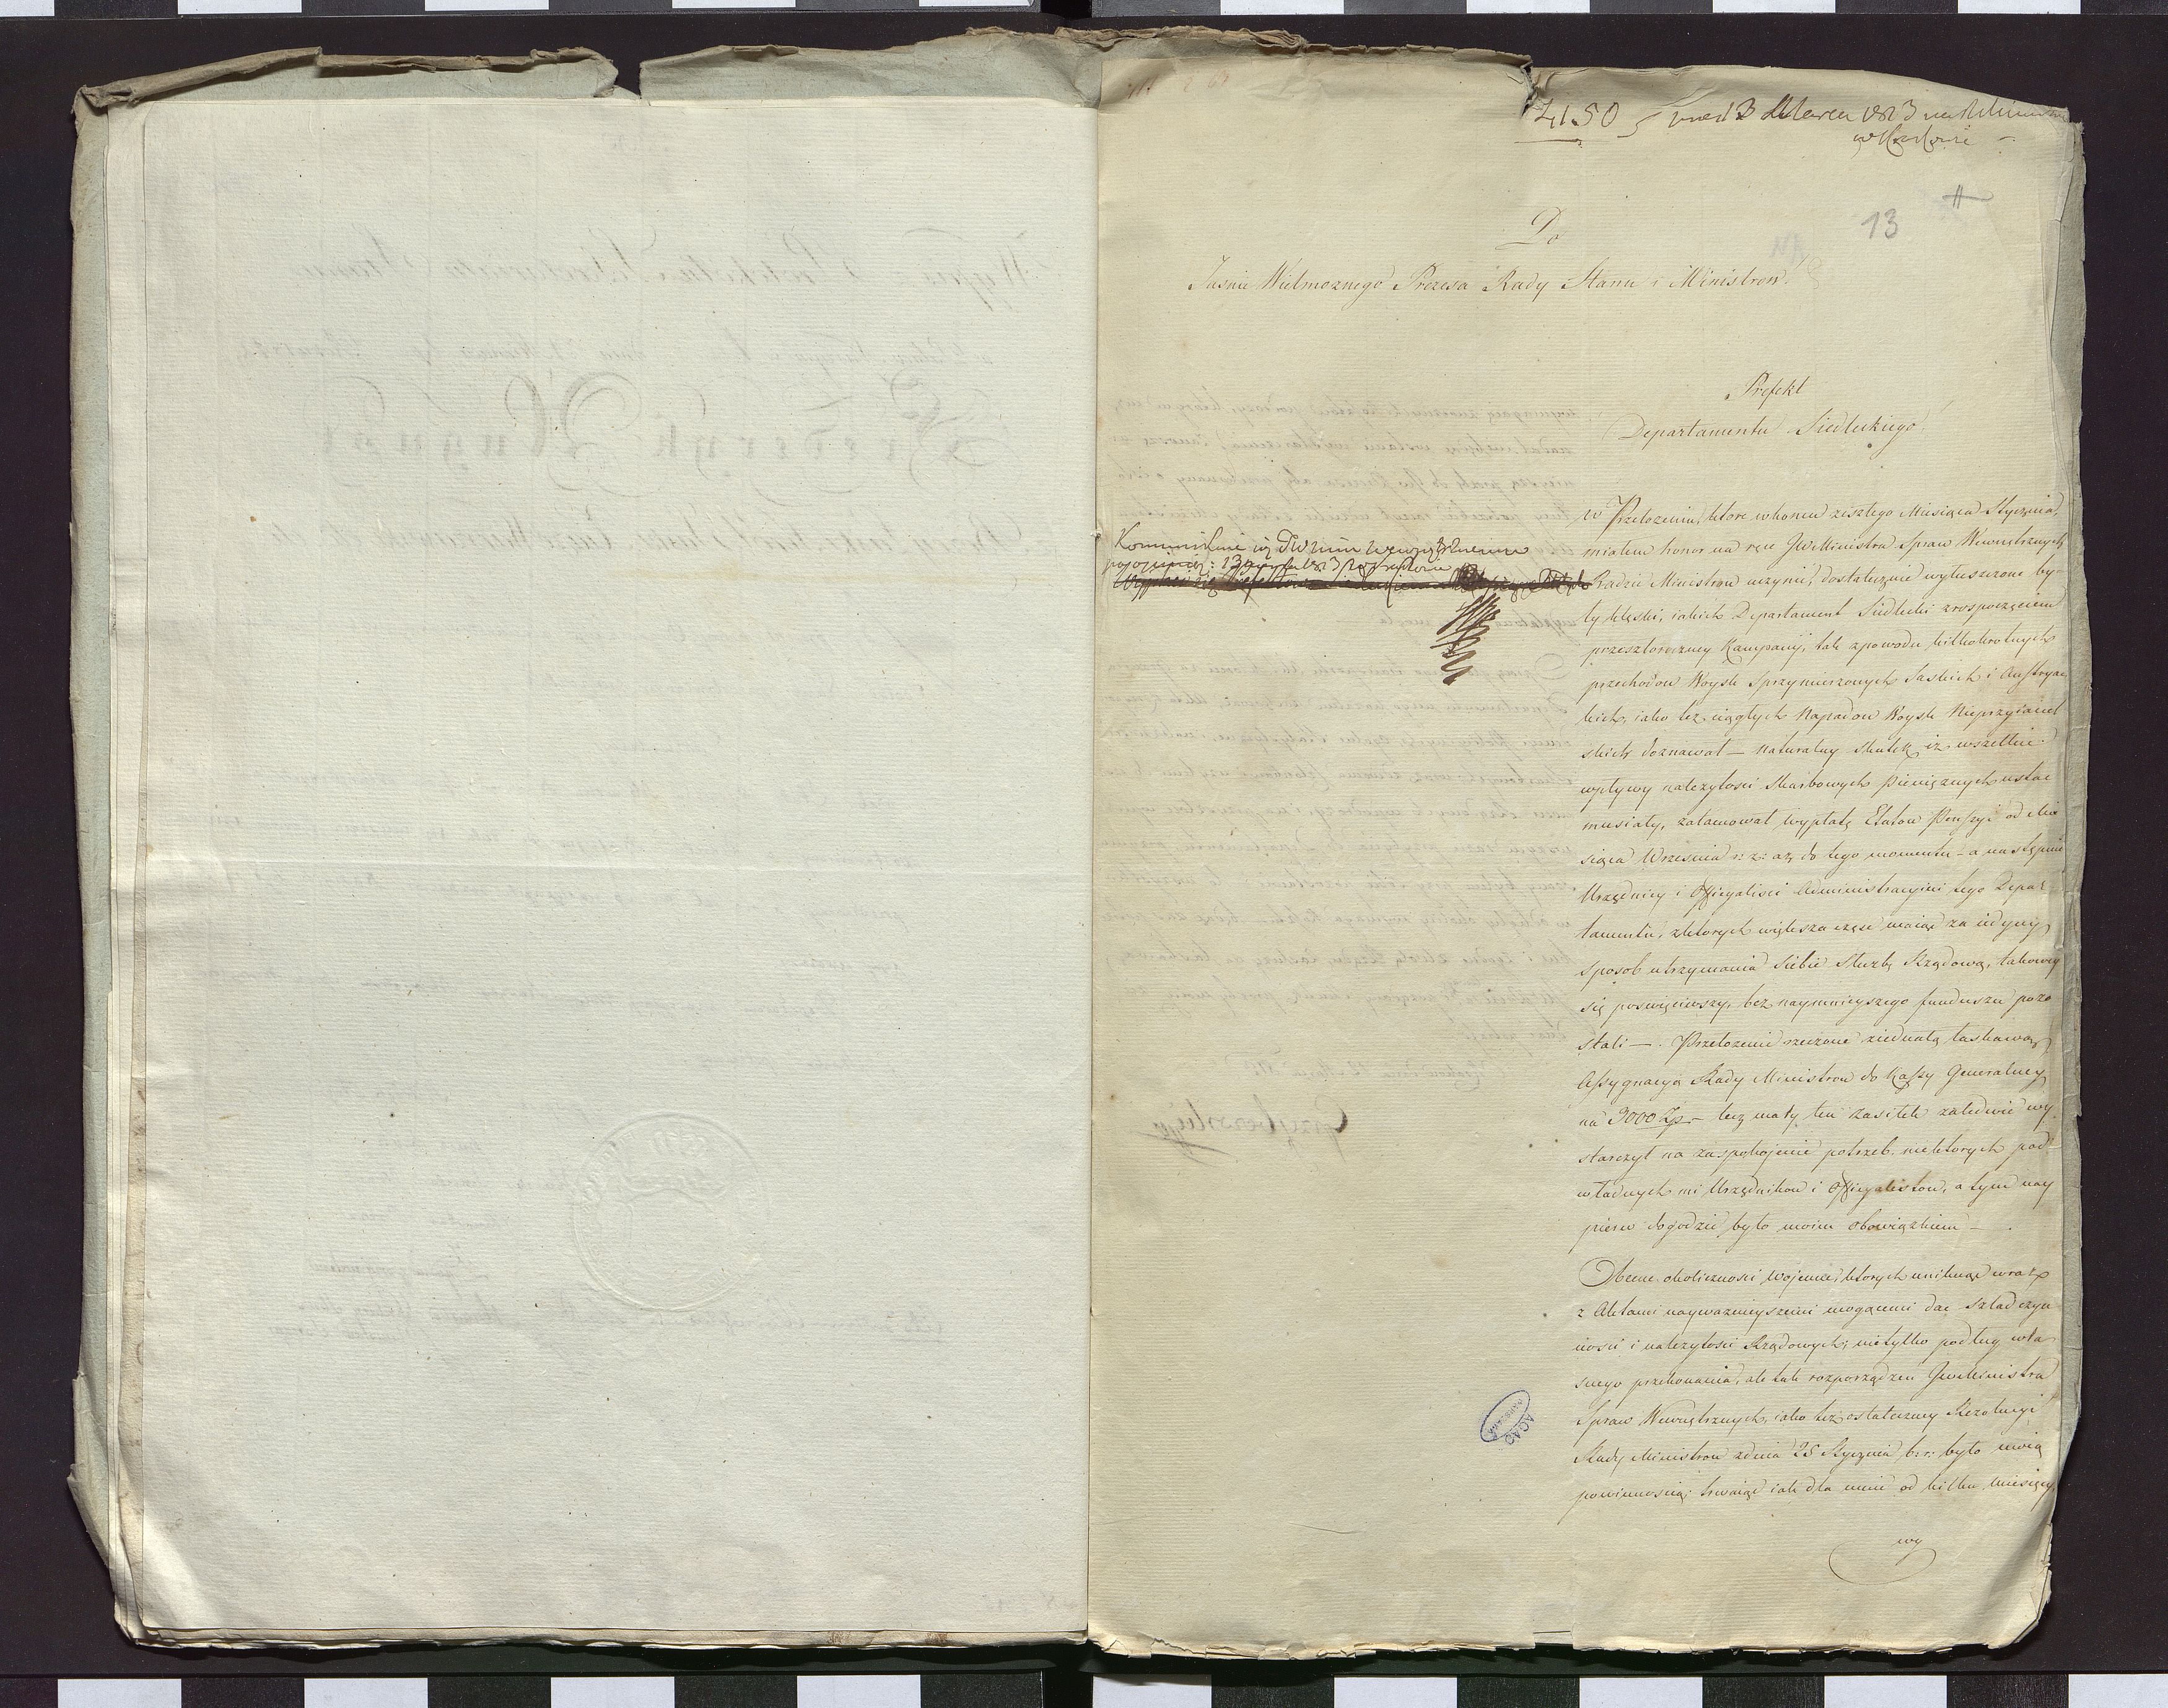 4150
13 Marca 1813
13
Do
Jasnie Wielmoznego Prezesa Rady Stanu i Ministrow.
Prefekt
Departamentu Siedleckiego
w Przełozeniu, ktore w koncu zeszłego Miesiąca Stycznia,
miałem honor na ręce JW Ministra Spraw Wewnętrznych
Radzie Ministrow uczynić, dostatecznie wyłuszczone by-
ły klęski, iakich Departament Siedlecki z rospoczęciem
przeszłoroczney Kampanij, tak z powodu kilkokrotnych
przechodow Woysk Sprzymierzonych Saskich i Austryac
kich, iako też ciągłych Napadow Woysk Nieprzyiaciel
skich doznawał — naturalny skutek iż wszelkie
wpływy należytosci Skarbowych pieniężnych ustac
musiały, zatamował wypłatę Etatow Pensyi od Mie
siąca Wrzesnia r: z: aż do tego momentu — a następnie
Urzędnicy i Officyalisci Administracyini tego Depar
tamentu, z ktorych większa częsc maiąc za iedyny
sposob utrzymania siebie Służbę Rządową, takowey
się poswięciwszy, bez naymnieyszego funduszu pozo
stali — . Przełozenie rzeczone ziednało łaskawą
Assygnacyą Rady Ministrow do Kassy Generalney
na 9000 Zp. — lecz mały ten zasiłek zaledwie wy
starczył na zaspokojenie potrzeb niektorych pod
władnych mi Urzędnikow i Officyalistow, a tym nay
pierw dogodzić było moim obowiązkiem —
Obecne okolicznosci wojenne, ktorych uniknąć wraz
z Aktami nayważnieyszemi mogącemi dac skład czyn
nosci i należytosci Rządowych, nietylko podług wła
snego przekonania, ale tak rozporządzeń JW Ministra
Spraw Wewnętrznych, iako też ostateczney Rezolucyi
Rady Ministrow z dnia 25 Stycznia b: r: było moią
powinnoscią; trwaiąc iak dla mnie od kilku Miesięcy
wy
Kommunikuie się
13 1813
AGAD
WARSZAWA